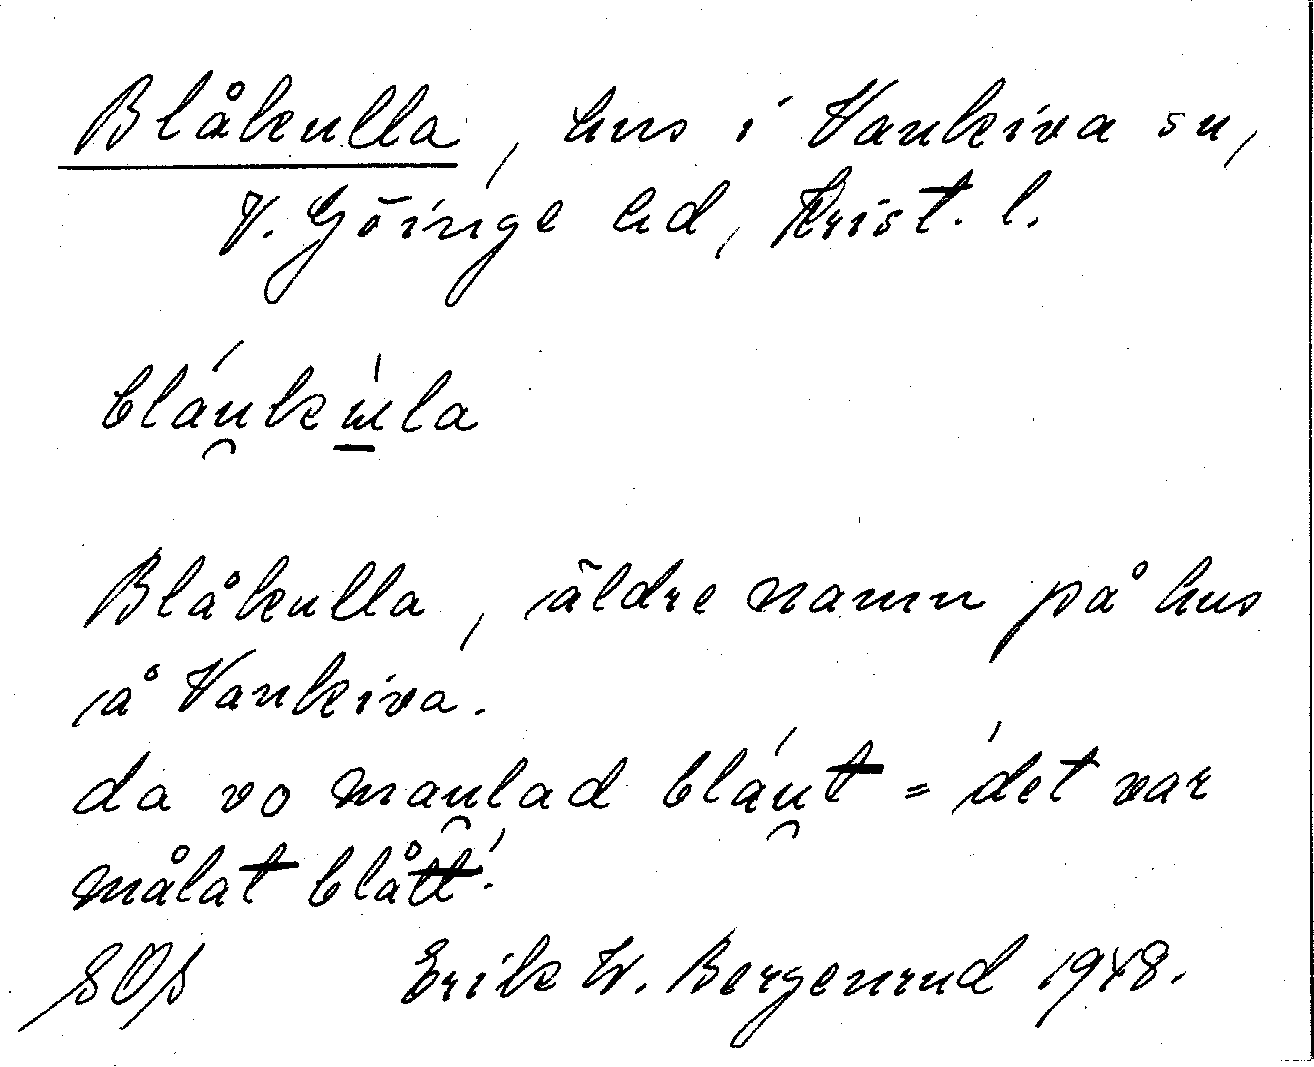 Blåkulla, hus i Vankiva sn,
V. Göinge hd, Krist. l.
bláu̯kùla
Blåkulla, äldre namn på hus
å Vankiva.
da vo mau̯lad bláu̯t = 'det var
målat blått'.
Erik W. Bergenrud 1948.